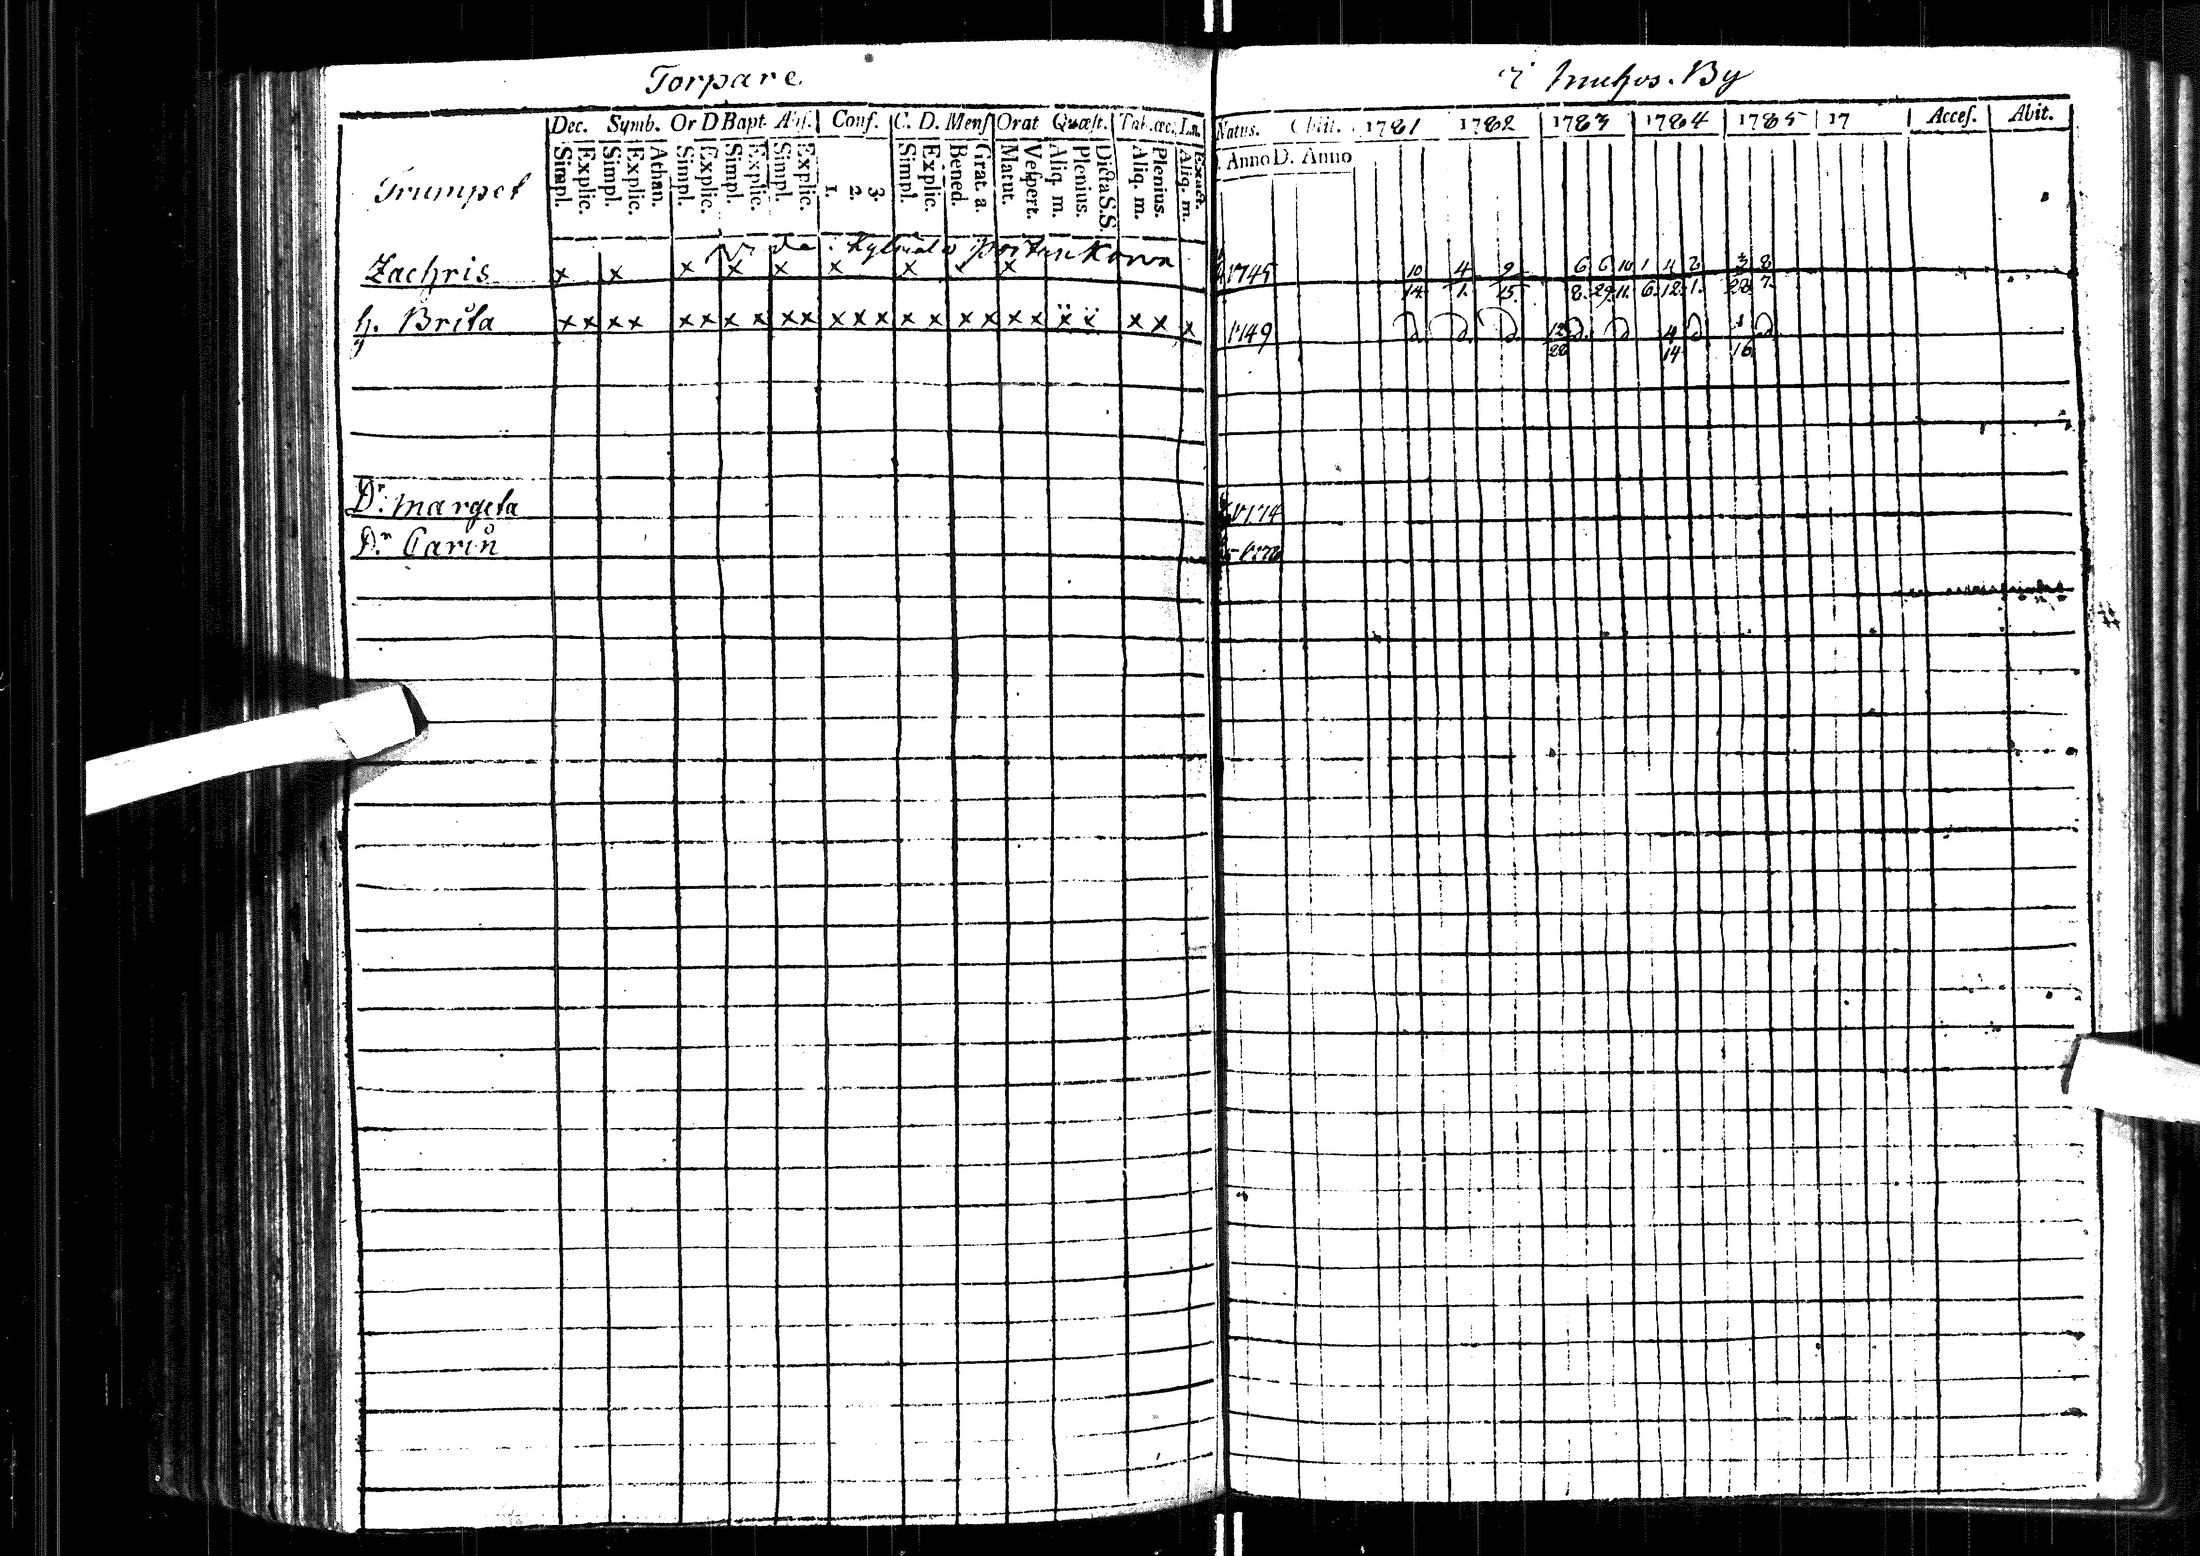 Torpare
i By
Dec. Symb. Or D Bapt Abs. Conf. C. D. Mens Orat Quæst. Tab. œc.
Natus. Obiit. 1781 1782 1783 1784 1785 17 Acces. Abit.
Simpl. Explic. Simpl. Explic. Athan. Simpl. Explic. Simpl. Explic. Simpl. Explic. 1. 2. 3. Simpl. Explic. Bened. Grat. a. Matut. Vespert. Aliq. m. Plenius. Dicta S.S. Aliq. m. Plenius. Aliq. m. Exact.
Anno D. Anno
Trumpet
Zachris x x x x x x x x 1745 10/14 4/1. 9/15. 6/8. 6/29 10/11. 1/6. 4/12 2/1. 3/28 8/7.
h. Brita x x x x x x x x x x x x x x x x x x x x x x x 1749 d. d. d. 12/28 d. d 4/14 d 16 d
Dr. Margeta 1774
Dr. Carin